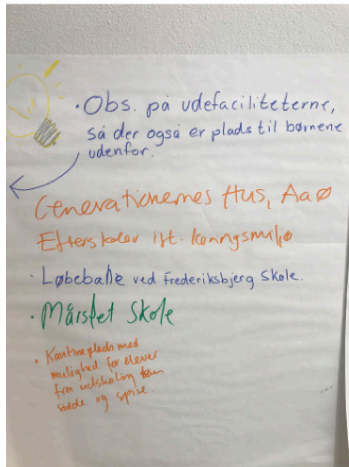 · Obs. på udefaciliteterne,
så der også er plads til børnene
udenfor.
Generationernes Hus, Aaø
Efterskoler ift. læringsmiljø
· Løbebane ved Frederiksbjerg Skole.
· Mårslet Skole
· Kantineplads med
mulighed for elever
fra udskoling
sidde og spise.